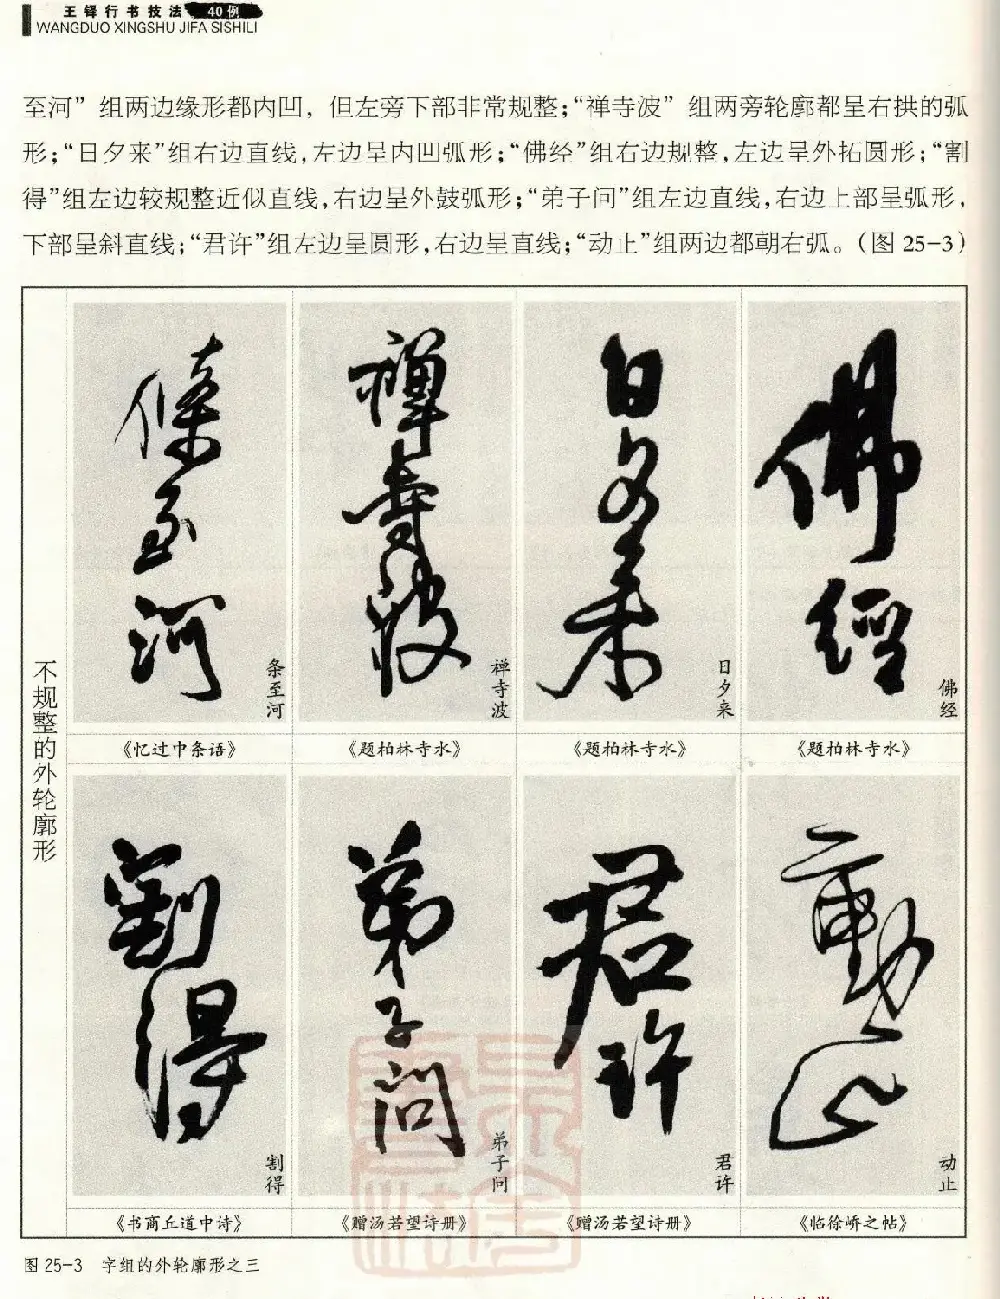 王铎行书技法40例
WANGDUO XINGSHU JIFA SISHILI
至河”组两边缘形都内凹，但左旁下部非常规整；“禅寺波”组两旁轮廓都呈右拱的弧
形；“日夕来”组右边直线，左边呈内凹弧形；“佛经”组右边规整，左边呈外拓圆形；“割
得”组左边较规整近似直线，右边呈外鼓弧形；“弟子问”组左边直线，右边上部呈弧形，
下部呈斜直线；“君许”组左边呈圆形，右边呈直线；“动止”组两边都朝右弧。（图 25-3）
不规整的外轮廓形
條至河
条至河
禪寺波
禅寺波
日夕来
日夕来
佛經
佛经
《忆过中条语》
《题柏林寺水》
《题柏林寺水》
《题柏林寺水》
割得
割得
弟子问
弟子问
君许
君许
動止
动止
《书商丘道中诗》
《赠汤若望诗册》
《赠汤若望诗册》
《临徐峤之帖》
图 25-3 字组的外轮廓形之三